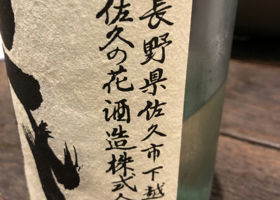 長野県佐久市下越
佐久の花酒造株式会